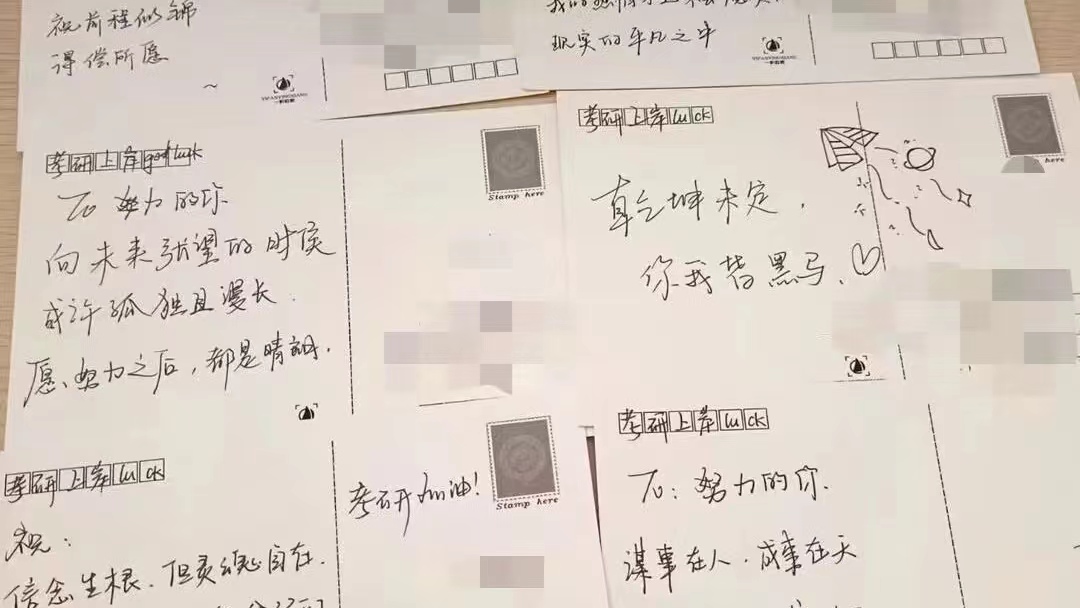 祝前程似锦
得偿所愿
~
YIFANYINGXIANG
一帆影像
现实的平凡之中
考研上岸good luck
Stamp here
To 努力的你
向未来张望的时候
或许孤独且漫长.
愿、努力之后，都是晴朗.
考研上岸luck
here
乾坤未定，
你我皆黑马.
考研上岸luck
考研加油!
Stamp here
祝：
信念生根.但灵魂自在.
考研上岸luck
To：努力的你.
谋事在人.成事在天